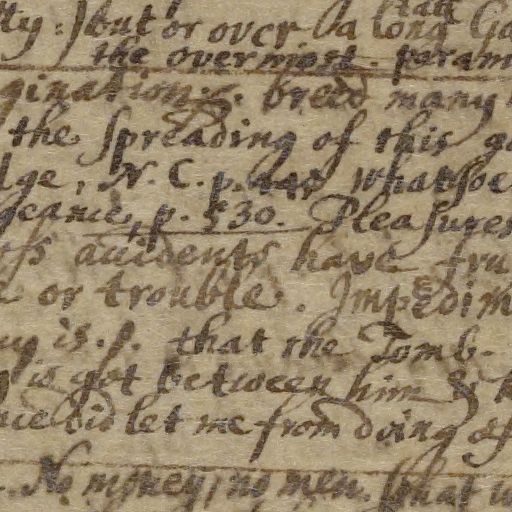 but or over a long
the overmost.
gination. breed many
the spreading of this
lge, N. C. p. whatsoe
geance, p. 530. Pleasures
accidents have fru
or trouble. Impedim
is. that the Tomb-
is got between him &
did let me from doing of
No money, no men. what